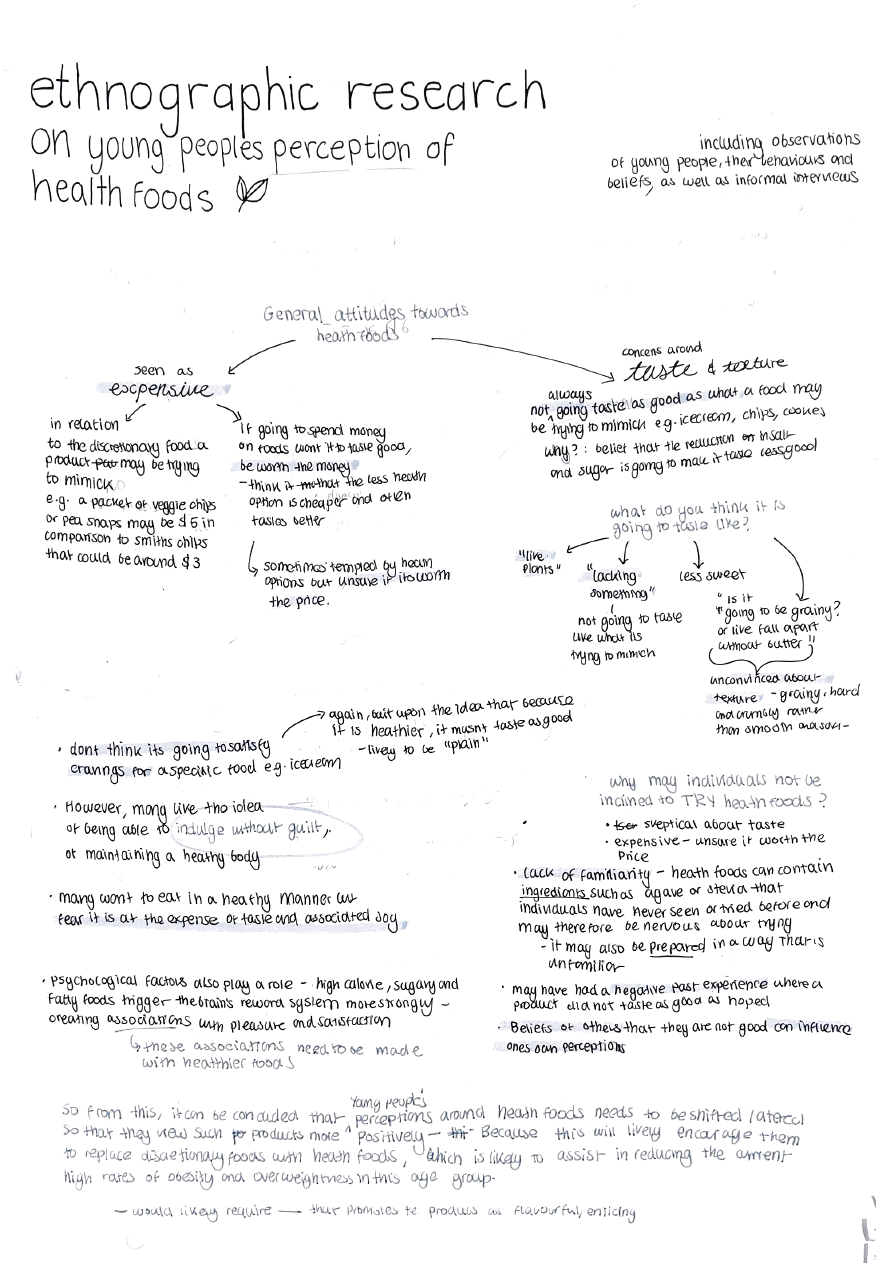 ethnographic research
on young peoples perception of
health foods
including observations
of young people, their behaviours and
beliefs, as well as informal interviews
General attitudes towards
health foods
seen as
expensive
in relation
to the discretionary food a
product may be trying
to mimick
e.g. a packet of veggie chips
or pea snaps may be $5 in
comparison to smiths chips
that could be around $3
If going to spend money
on foods want it to taste good,
be worth the money
- think that the less health
option is cheaper and often
tastes better
sometimes tempted by health
options but unsure if its worth
the price.
concens around
taste & texture
always
not going taste as good as what a food may
be trying to mimick e.g. icecream, chips, cookies
why?: belief that the reduction in salt
and sugar is going to make it taste less good
what do you think it is
going to taste like?
"like
plants"
"lacking
something"
not going to taste
like what it is
trying to mimich
less sweet
"is it
"going to be grainy?
or like fall apart
without butter"
unconvinced about
texture - grainy, hard
and crumbly rather
than smooth and soft-
· dont think its going to satisfy
cravings for a specific food e.g. icecream
again, built upon the idea that because
it is healthier, it musnt taste as good
- likely to be "plain"
· However, many like the idea
of being able to indulge without guilt,
of maintaining a healthy body
· many want to eat in a healthy manner but
fear it is at the expense of taste and associated joy
· psychological factors also play a role - high calorie, sugary and
fatty foods trigger the brains reward system more strongly -
creating associations with pleasure and satisfaction
these associations need to be made
with healthier foods
why may individuals not be
inclined to TRY health foods?
· skeptical about taste
· expensive - unsure if worth the
price
· lack of familiarity - health foods can contain
ingredients such as agave or stevia that
individuals have never seen or tried before and
may therefore be nervous about trying
- it may also be prepared in a way that is
unfamiliar
· may have had a negative past experience where a
product did not taste as good as hoped
· Beliefs of others that they are not good can influence
ones own perceptions
Young people's
So from this, it can be concluded that perceptions around health foods needs to be shifted / altered
so that they view such products more positively - Because this will likely encourage them
to replace discretionary foods with health foods, which is likely to assist in reducing the current
high rates of obesity and overweightness in this age group.
- would likely require — that promotes te products as flavourful, enticing